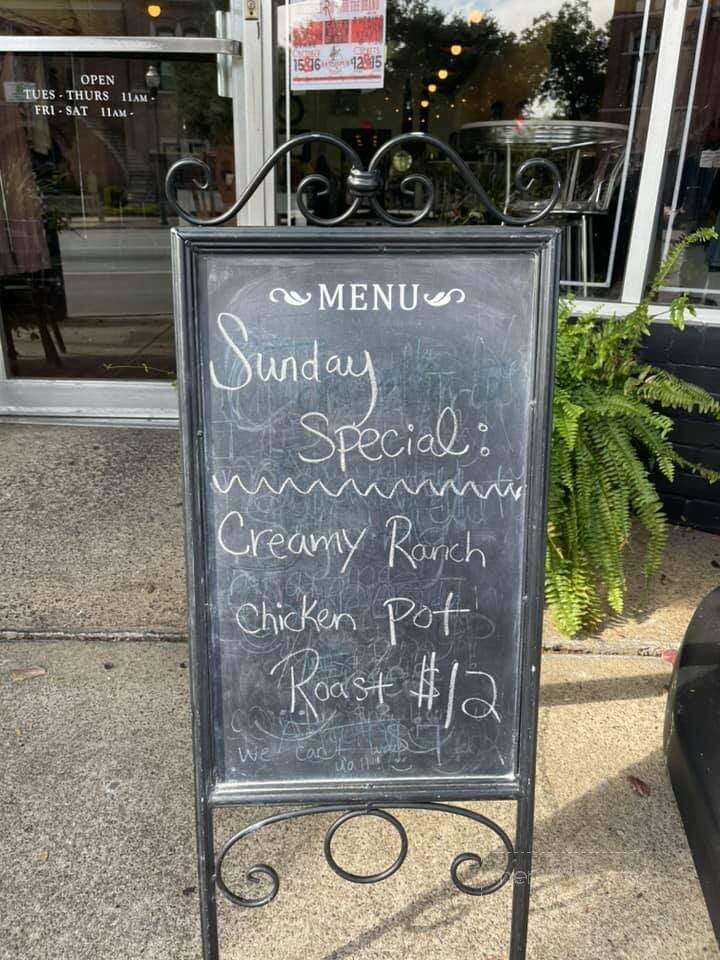 OPEN
TUES - THURS 11AM -
FRI - SAT 11AM -
15&16
MENU
Sunday
Special:
Creamy Ranch
Chicken Pot
Roast $12
We can't